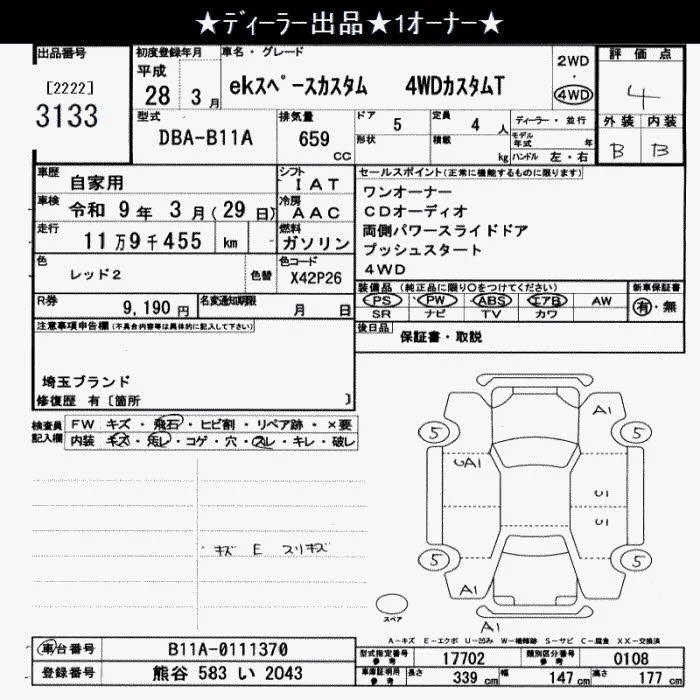 ★ディーラー出品★1オーナー★
出品番号
[2222]
3133
初度登録年月
平成
28 3月
車名・グレード
ekスペースカスタム 4WDカスタムT
2WD
・
4WD
評価点
4
外装 内装
B B
型式
DBA-B11A
排気量
659
CC
ドア 5
形状
定員 4 人
積載 kg
ディーラー・並行
モデル年式 年
ハンドル 左・右
車歴 自家用
シフト IAT
車検 令和 9年 3月(29日)
冷房 AAC
走行 11万9千455 km
燃料 ガソリン
色 レッド2 色替
色コード X42P26
R券 9,190円
名変通知期限 月 日
セールスポイント(正常に機能するものに限ります)
ワンオーナー
CDオーディオ
両側パワースライドドア
プッシュスタート
4WD
装備品(純正品に限り○をつけてください)
PS PW ABS エアB AW
SR ナビ TV カワ
新車保証書
有・無
後日品 保証書・取説
注意事項申告欄(不具合内容等は具体的に記入して下さい)
埼玉ブランド
修復歴 有〔箇所 〕
検査員記入欄
FW キズ・飛石・ヒビ割・リペア跡・×要
内装 キズ・汚レ・コゲ・穴・スレ・キレ・破レ
キズ E スリキズ
A1
5 5
GA1
U1
U1
5 5
A1
スペア
A1
A-キズ E-エクボ U-凹み W-補修跡 S-サビ C-腐食 XX-交換済
車台番号 B11A-0111370
登録番号 熊谷 583 い 2043
型式指定番号 参考 17702
類別区分番号 参考 0108
車庫証明用 参考 長さ 339 cm 幅 147 cm 高さ 177 cm